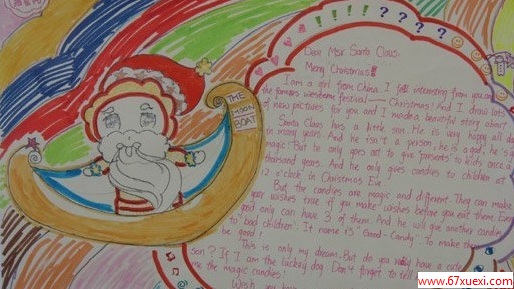 ! ! ! ! ? ? ? ?
Dear Msr Santa Claus:
Merry Christmas!!!
I am a girl from China. I felt interesting from you and
the famous western festival —— Christmas! And I draw lots
of new pictures for you and I made a beautiful story about
Santa Claus has a little son. He is very happy all day
in many years. And he isn't a person, he is a god, he's
magic! But he only goes act to give presents to kids once a
thousand years. And he only gives candies to children at
12 o'clock in Christmas Eve.
But, the candies are magic and different. They can make
your wishes true if you make wishes before you eat them. Every
good only can have 3 of them. And he will give another candies
to "bad children". It name is "Good-Candy". To make them
be good!
This is only my dream. But do you really have a cute
son? If I am the luckey dog. Don't forget to tell
me the magic candies!
Wish you
THE
MOON
BOAT
www.67xuexi.com